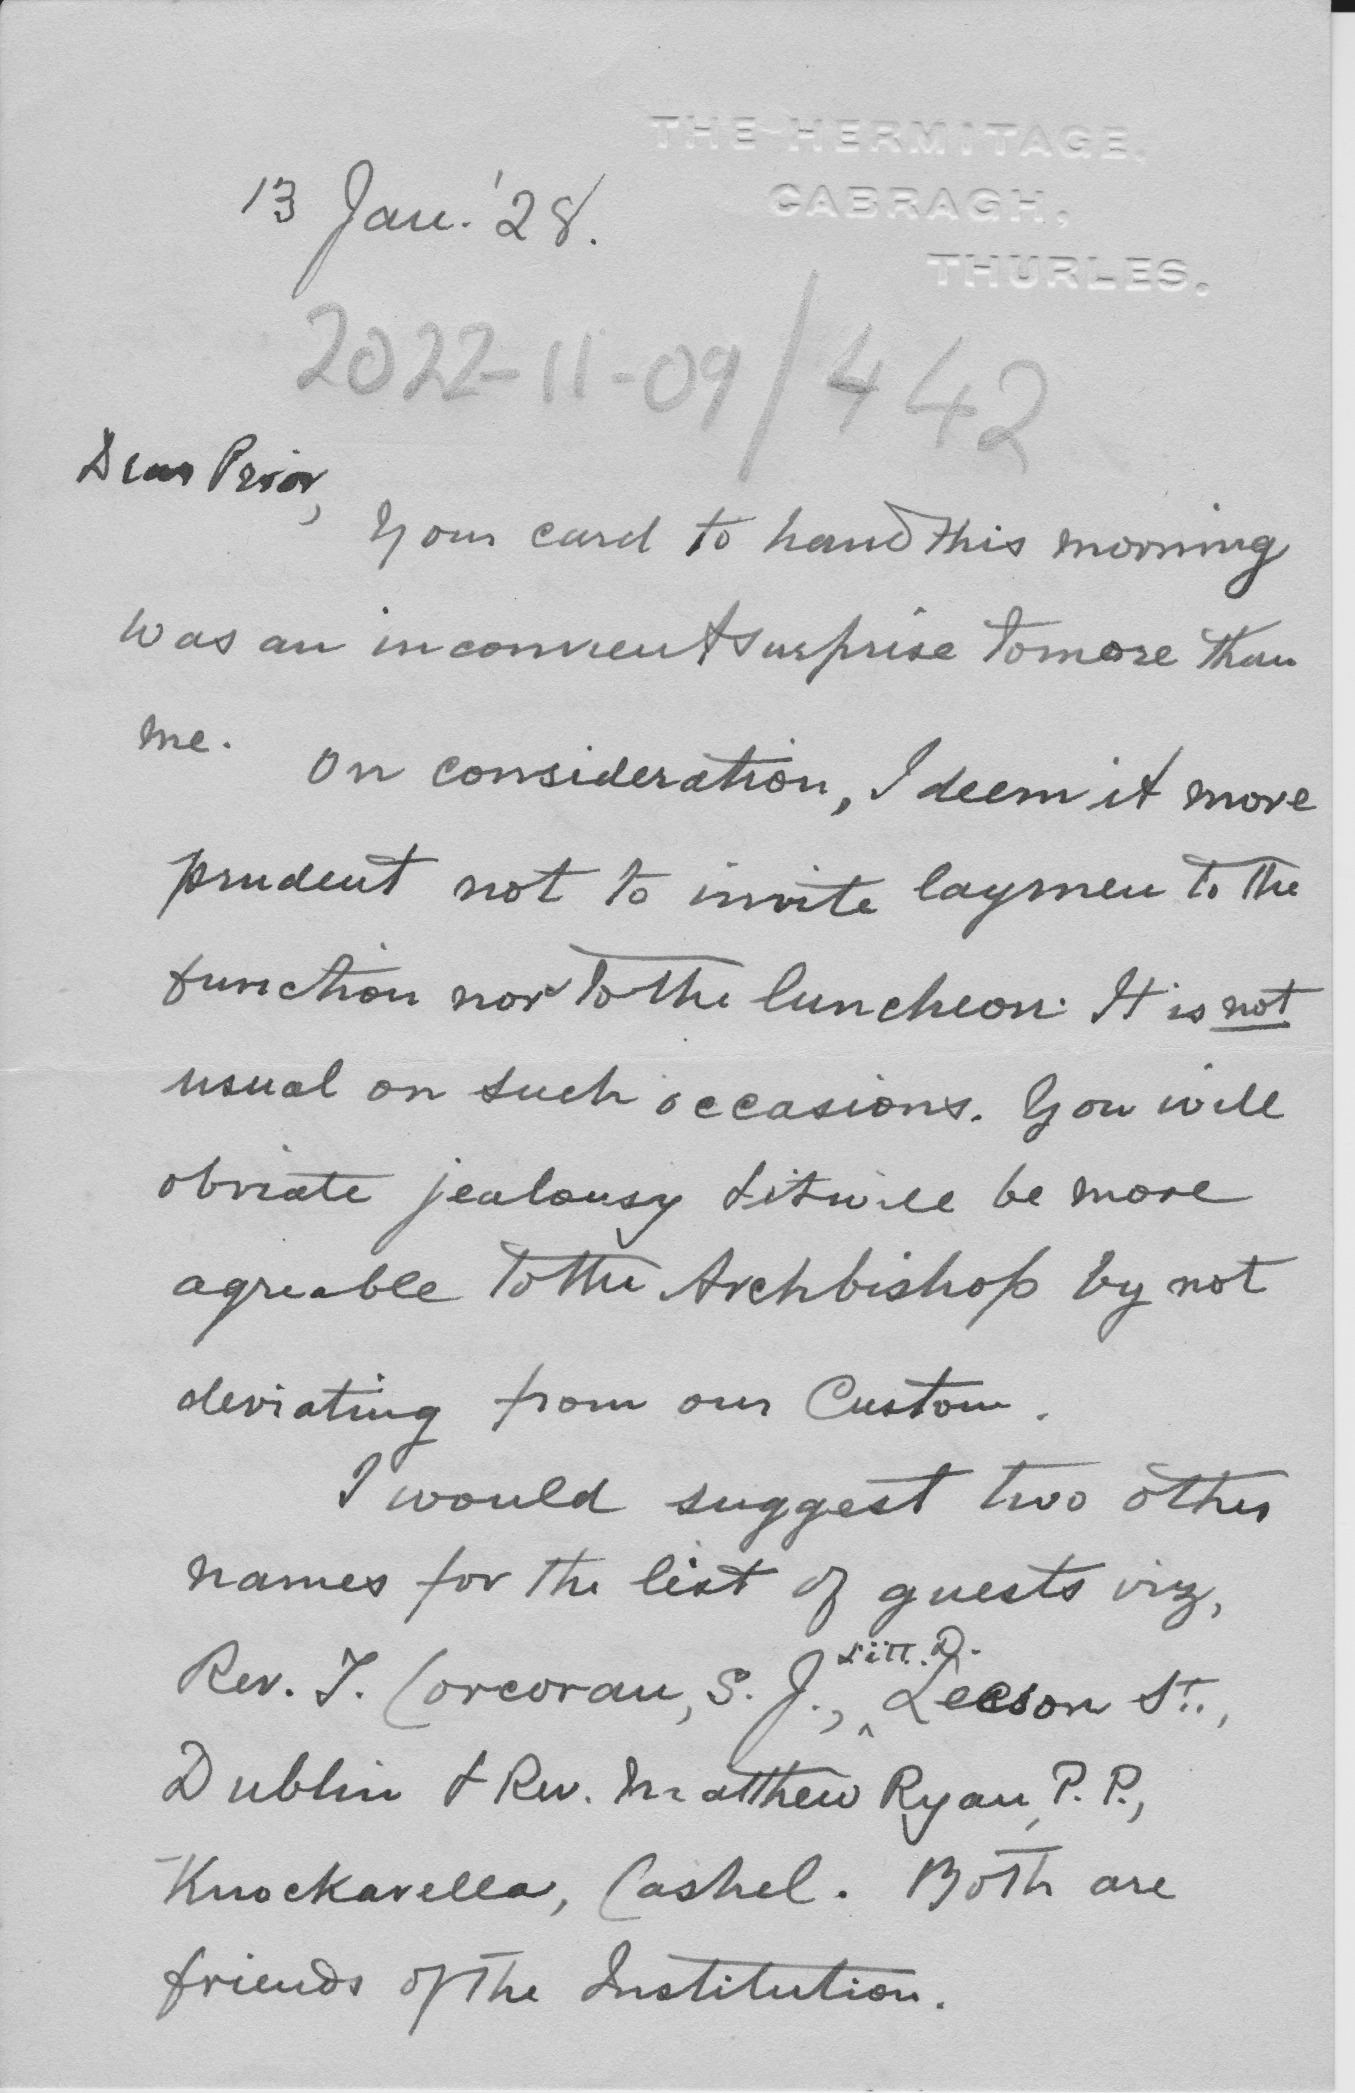 THE HERMITAGE.
CABRAGH,
THURLES.
13 Jan. '28.
2022-11-09/442
Dear Prior,
Your card to hand this morning
was an inconvenient surprise to more than
me.
On consideration, I deem it more
prudent not to invite laymen to the
function nor to the luncheon. It is not
usual on such occasions. You will
obviate jealousy & it will be more
agreable to the Archbishop by not
deviating from our Custom.
I would suggest two other
names for the list of guests viz,
Rev. T. Corcoran, S. J., Litt. D. Leeson St.,
Dublin & Rev. Matthew Ryan, P. P.,
Knockavella, Cashel. Both are
friends of the Institution.